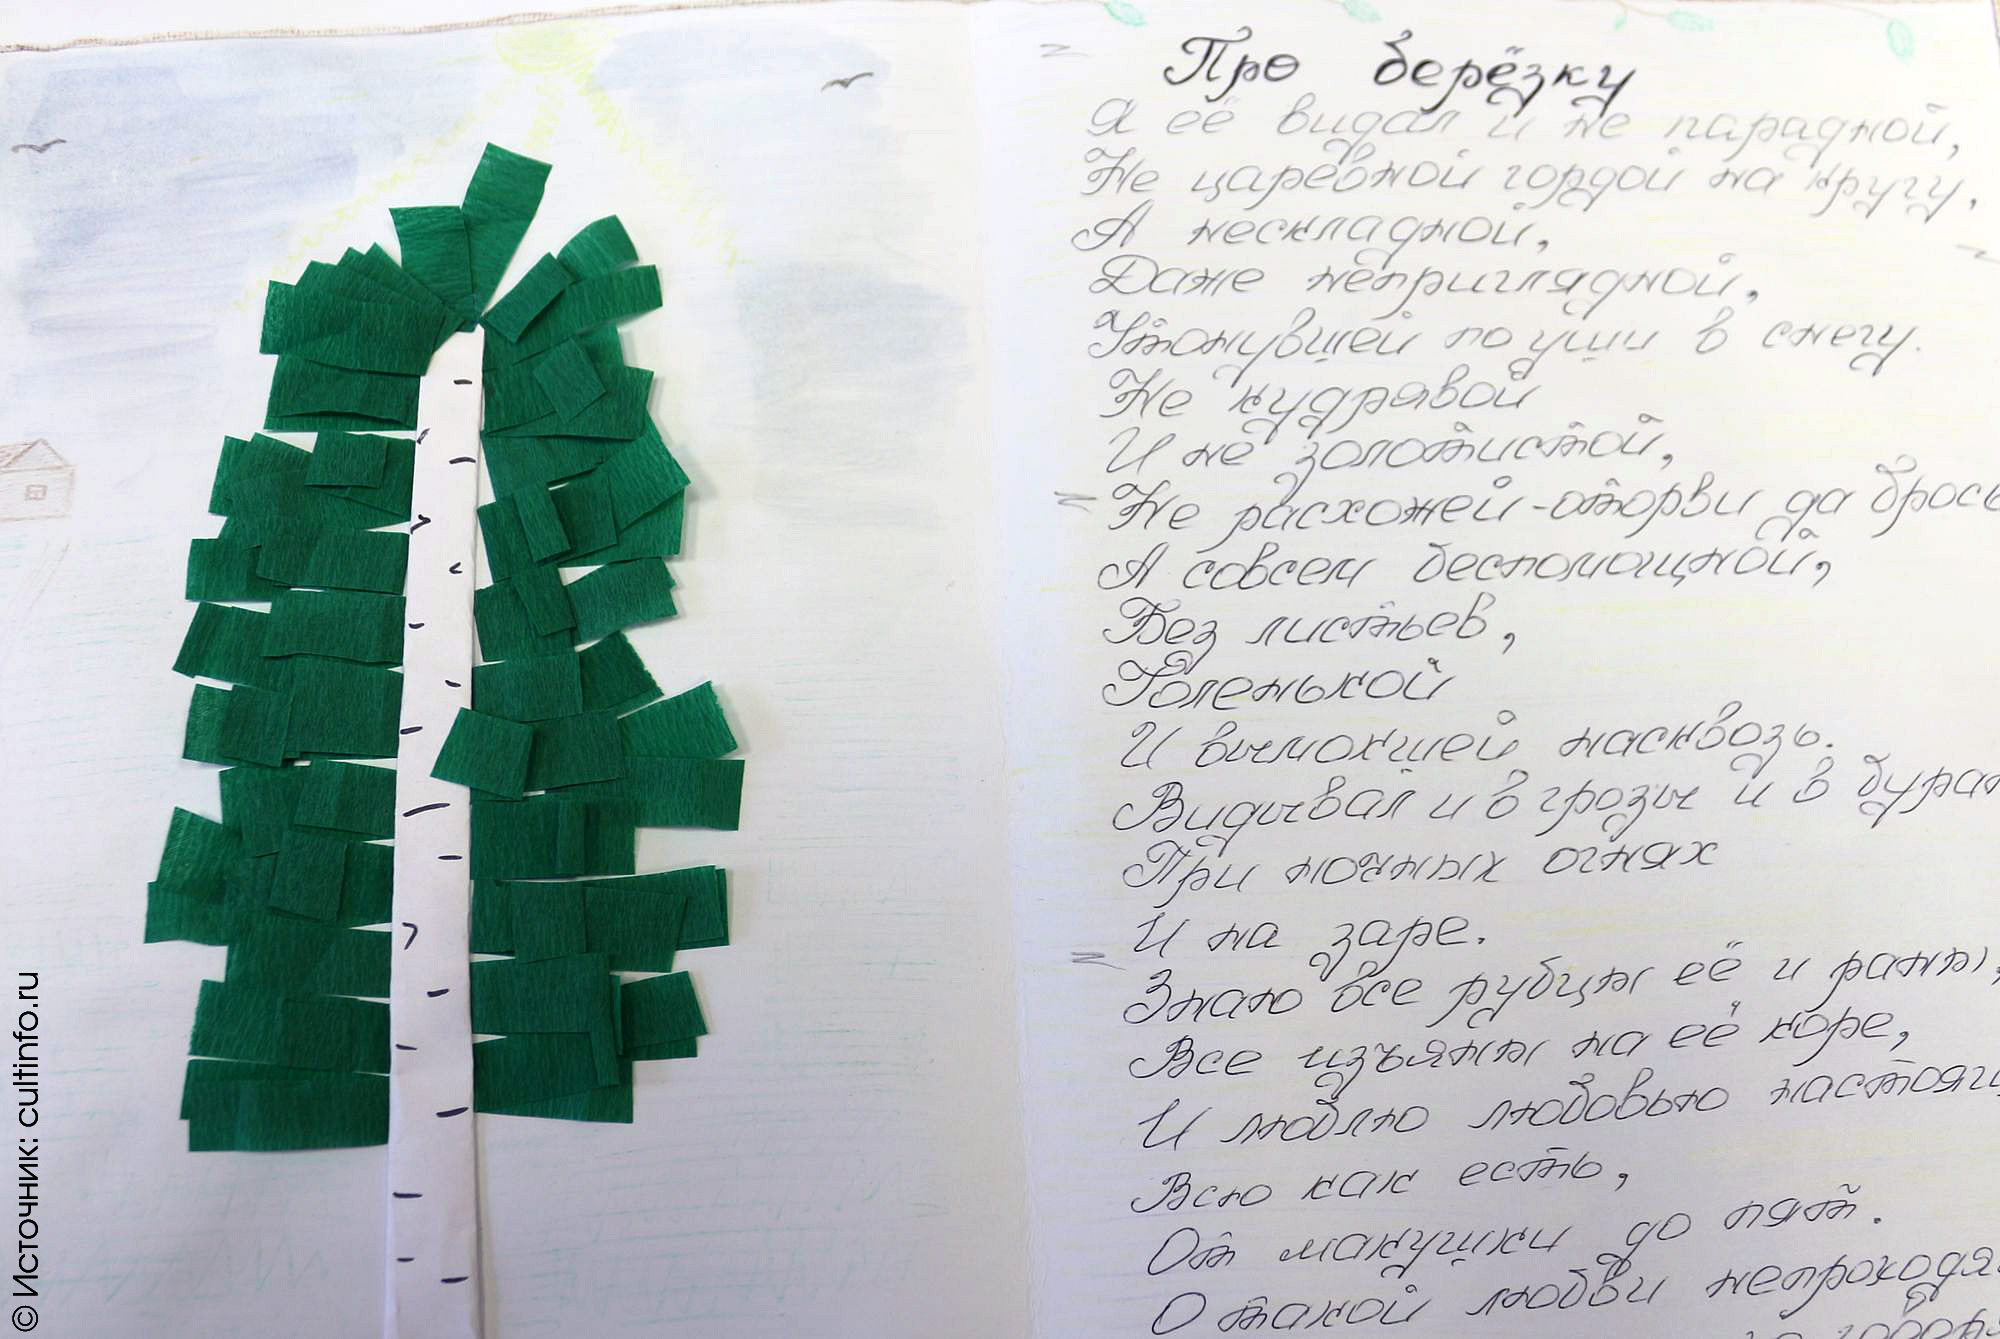 Про берёзку
Я её видал и не парадной,
Не царевной гордой на кругу,
А нескладной,
Даже неприглядной,
Утонувшей по уши в снегу.
Не кудрявой
И не золотистой,
Не расхожей-оторви да брось
А совсем беспомощной,
Без листьев,
Голенькой
И вымокшей насквозь.
Видывал и в грозы и в бура
При ночных огнях
И на заре.
Знаю все рубцы её и раны,
Все изъяны на её коре,
И люблю любовью настоящ
Всю как есть,
От макушки до пят.
О такой любви непроходя
© Источник: cultinfo.ru